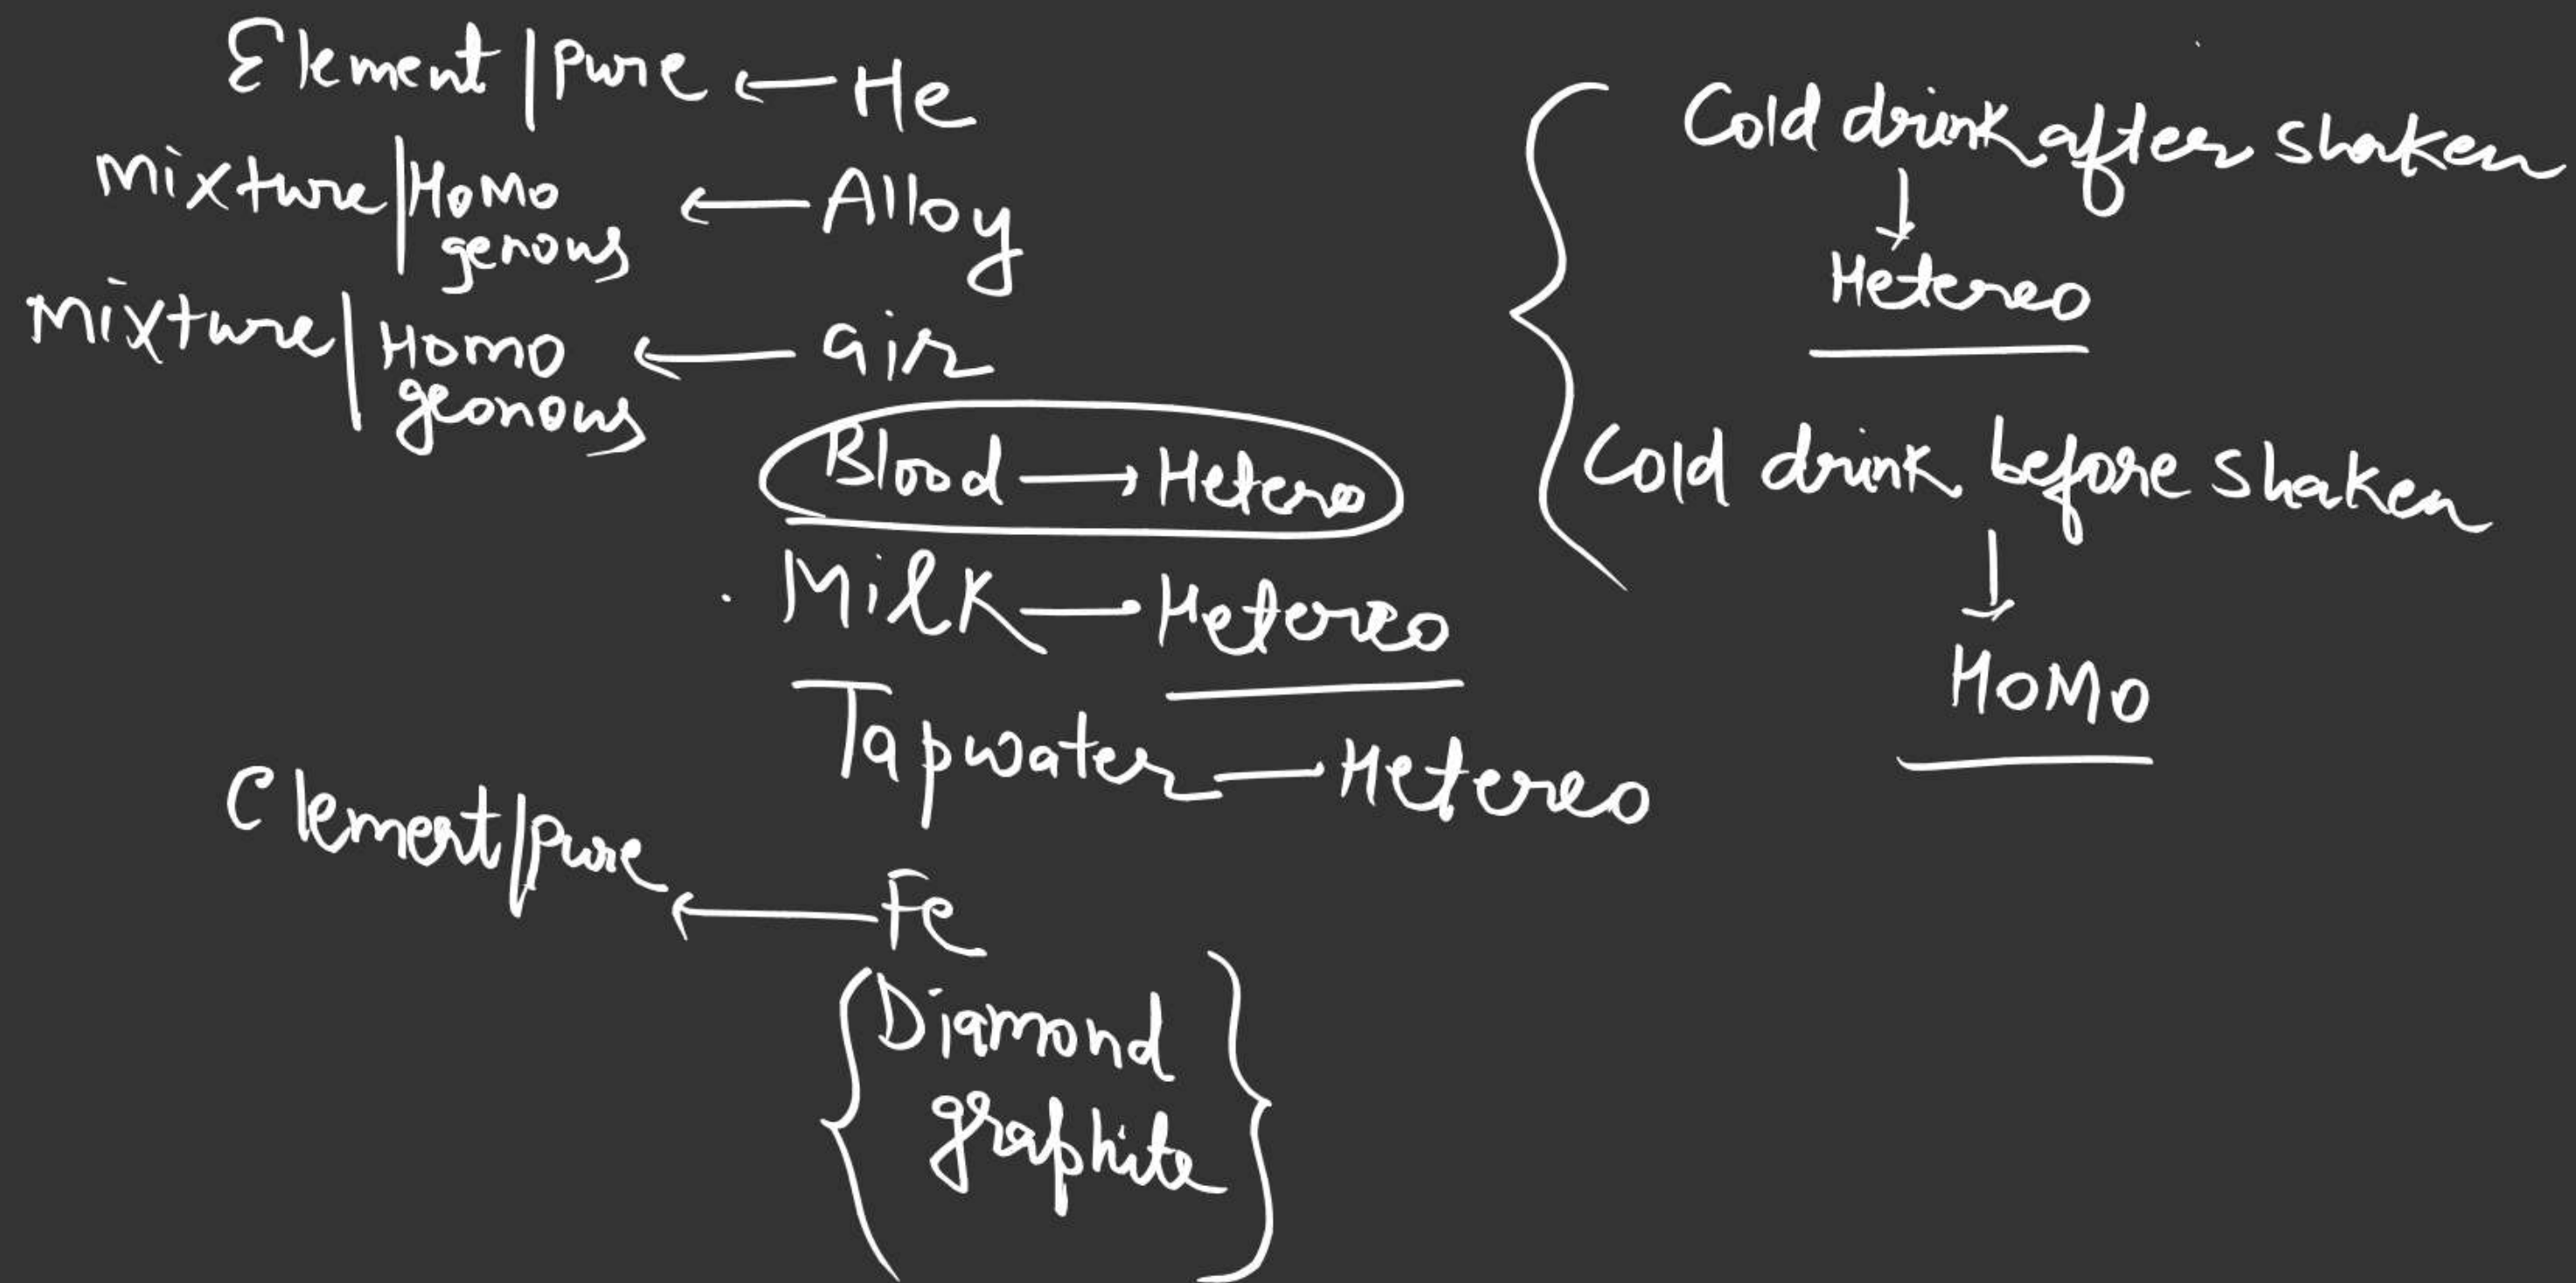 Element | pure ← He
Mixture | Homo genous ← Alloy
Mixture | Homo geonous ← air
Blood → Hetero
Milk — Hetereo
Tapwater — Hetereo
Element/pure ← Fe
Diamond
graphite
Cold drink after shaken
↓
Hetereo
Cold drink before shaken
↓
HoMo